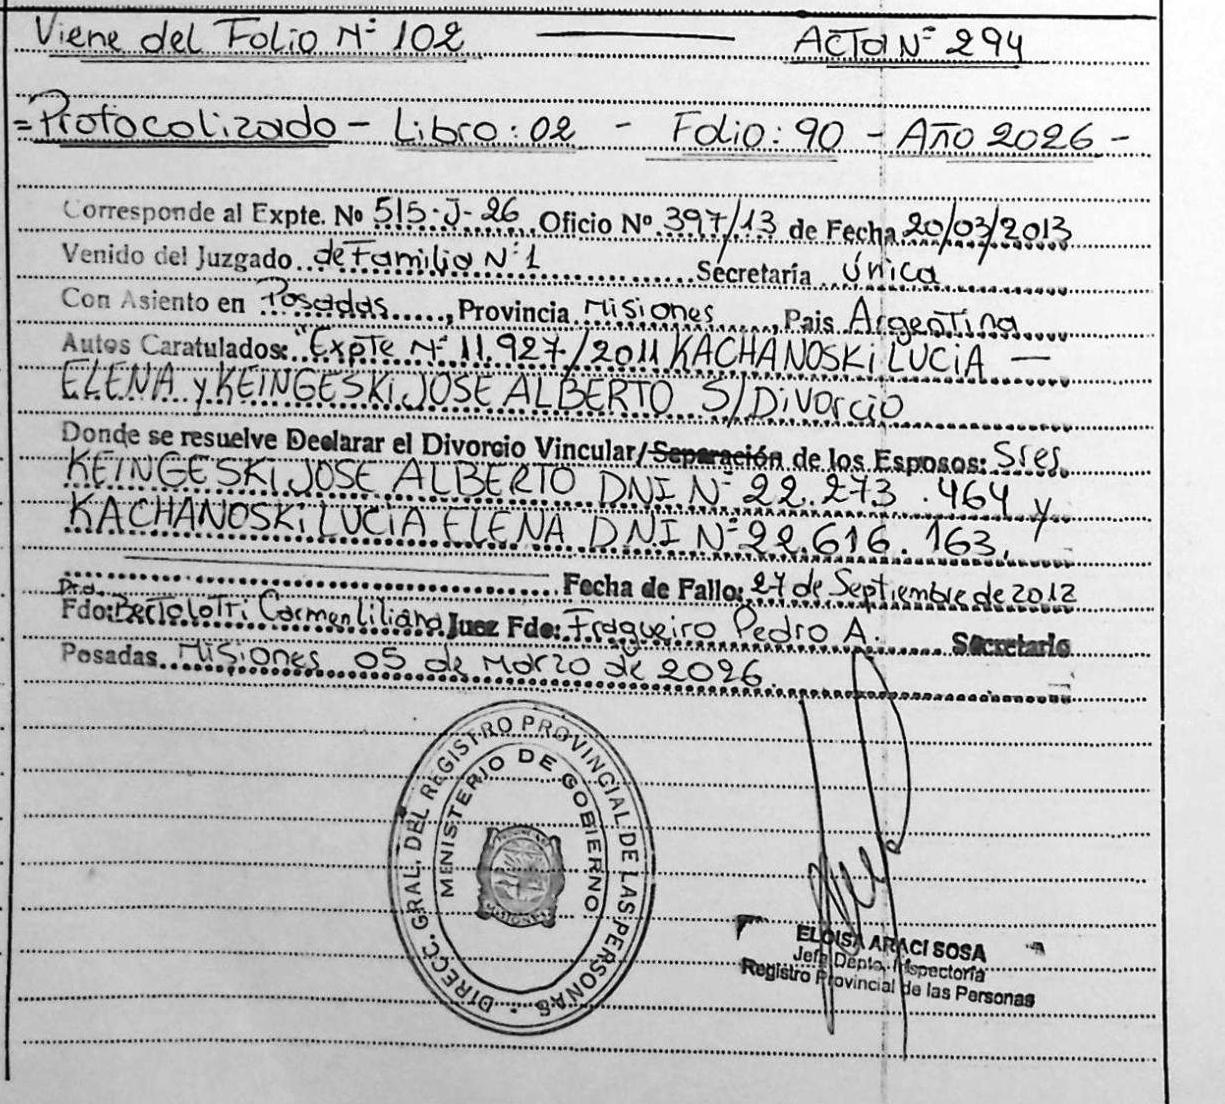 Viene del Folio Nº 102 ——— Acta Nº 294
=Protocolizado - Libro: 02 - Folio: 90 - Año 2026 -
Corresponde al Expte. No 515-J-26 Oficio Nº 397/13 de Fecha 20/03/2013
Venido del Juzgado de Familia Nº 1 Secretaría Única
Con Asiento en Posadas, Provincia Misiones, Pais Argentina
Autos Caratulados: "Expte Nº 11.927/2011 KACHANOSKI LUCIA —
ELENA y KEINGESKI JOSE ALBERTO S/Divorcio
Donde se resuelve Declarar el Divorcio Vincular/Separación de los Esposos: Sres.
KEINGESKI JOSE ALBERTO DNI Nº 22.273.464 y
KACHANOSKI LUCIA ELENA DNI Nº 22.616.163.
Fecha de Fallo: 27 de Septiembre de 2012
Dra.
Fdo: Bertolotti Carmen Liliana Juez Fdo: Fragueiro Pedro A. Secretario
Posadas Misiones 05 de Marzo de 2026
DIRECC. GRAL. DEL REGISTRO PROVINCIAL DE LAS PERSONAS
MINISTERIO DE GOBIERNO
MISIONES
ELOISA ARACI SOSA
Jefa Depto. Inspectoría
Registro Provincial de las Personas